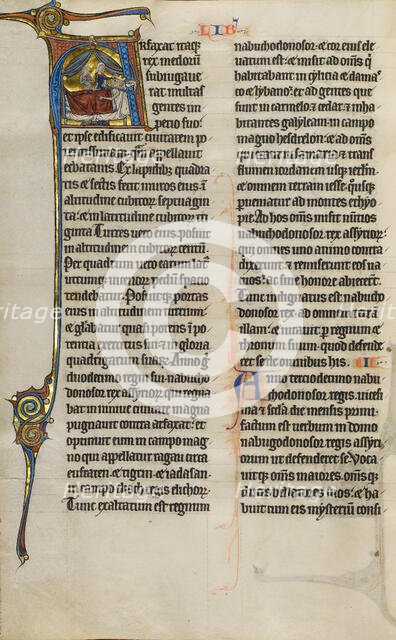 LIB'
Arfaxat itaq;
rex medorū
subiugaue
rat multas
gentes im
perio suo.
et ipse edificauit ciuitatem po
tentissimā quā appellauit
ecbatanis. Ex lapidibus quadra
tis et sectis fecit muros eius ī
altitudine cubitor septuagin
ta. et in latitudine cubitor tri
ginta. Turres uero eius posuit
in altitudinem cubitor centū.
Per quadrum uero earum lat'
utrimq; uicenor pedū spacio
tendebatur. Posuitq; portas
eius in altitudinem turrium.
et gl'abatur quasi potens ī po
tentia exercitus sui et in gloria
quadrigarum suar. Anno g'
duodecimo regni sui nabucho
donosor rex assyrior qui regna
bat in niniue ciuitate magna
pugnauit contra arfaxat. et
optinuit eum in campo mag
no qui appellatur ragau circa
eufraten et tigrin et iadasan.
in campo erioch regis elichor.
Tunc exaltatum est regnum
nabuchodonosor. et cor eius ele
uatum est. et misit ad oms q'
habitabant in cylicia et dama
co et lybano. et ad gentes que
sunt in carmelo et cedar. et inha
bitantes galyleam in campo
magno hesdrelon. et ad oms
qui erant in samaria et trans
flumen iordanem usq; ierlm.
et omnem terram iesse. q'usq;
perueniatur ad montes ethyo
pie. Ad hos oms misit nuncios
nabuchodonosor rex assyrior.
qui omnes uno animo contra
dixerunt. et remiserunt eos ua
cuos. ac sine honore abiecerūt.
Tunc indignatus est nabucho
donosor rex ad omnem terram
illam. et iurauit p regnum et
thronum suum. quod defende
ret se de omnibus his. II
Anno terciodecimo nabu
chodonosor regis. uicesi
ma et secda die mensis primi
factum est uerbum in domo
nabugodonosor regis assyrior
um ut defenderet se. Voca
uitq; oms maiores. omsq;
duces bellatores suos. et ha
buit cum eis mysterium consi